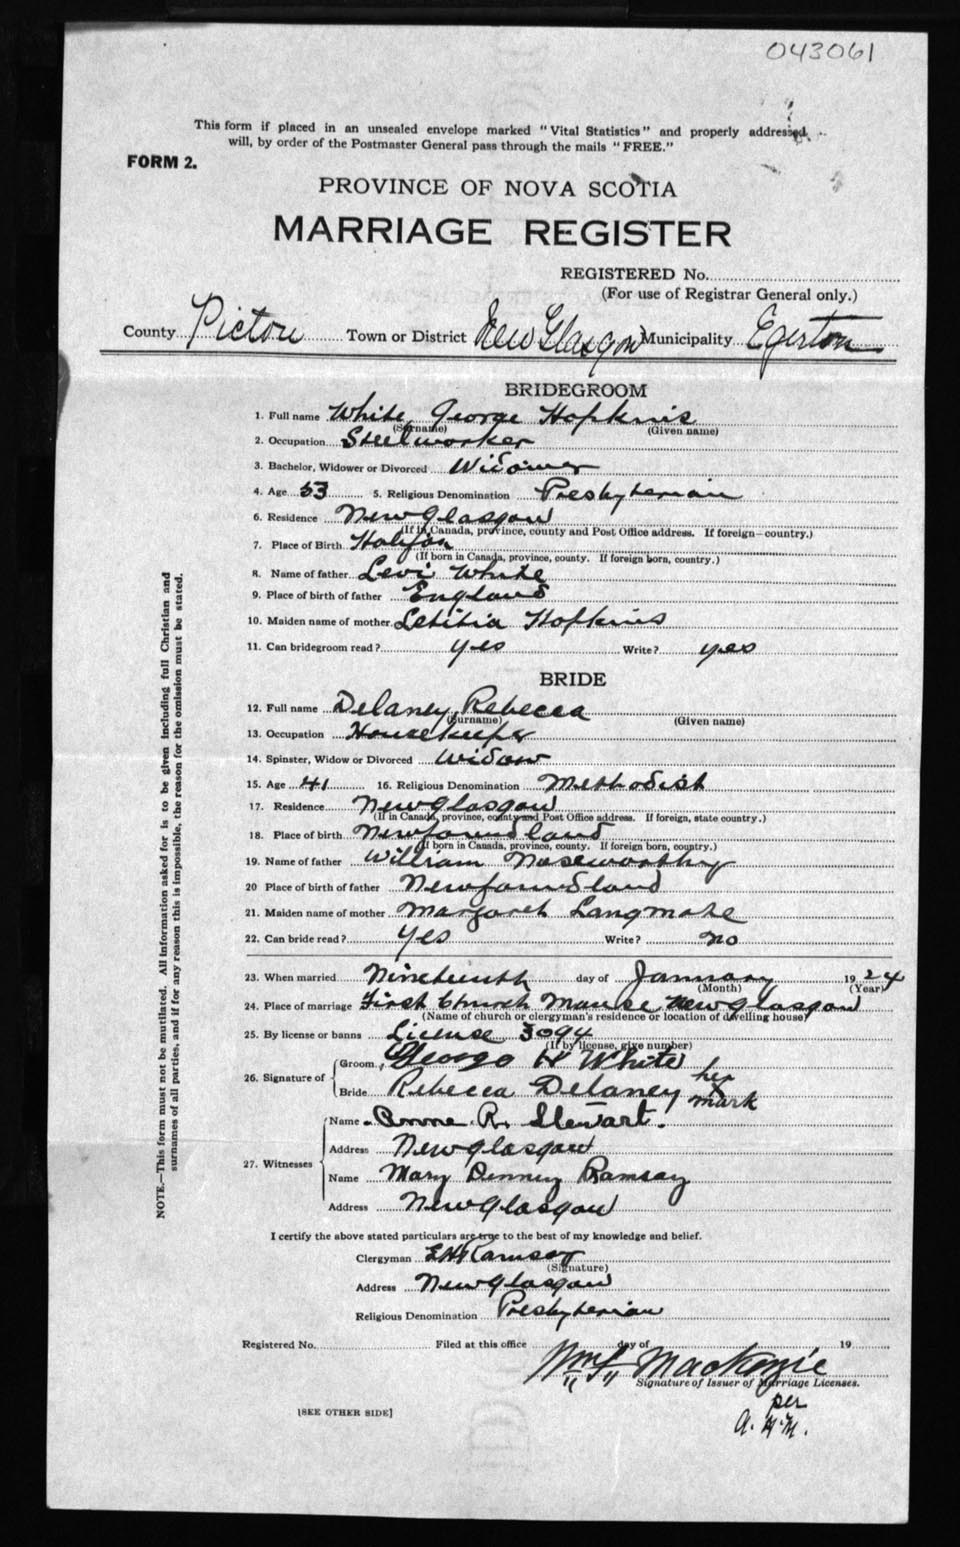 043061
This form if placed in an unsealed envelope marked "Vital Statistics" and properly addressed
will, by order of the Postmaster General pass through the mails "FREE."
FORM 2.
PROVINCE OF NOVA SCOTIA
MARRIAGE REGISTER
REGISTERED No.
(For use of Registrar General only.)
County Pictou Town or District New Glasgow Municipality Egerton
BRIDEGROOM
1. Full name White George Hopkins
(Surname) (Given name)
2. Occupation Steelworker
3. Bachelor, Widower or Divorced Widower
4. Age 53 5. Religious Denomination Presbyterian
6. Residence New Glasgow
(If in Canada, province, county and Post Office address. If foreign—country.)
7. Place of Birth Halifax
(If born in Canada, province, county. If foreign born, country.)
8. Name of father Levi White
9. Place of birth of father England
10. Maiden name of mother Letitia Hopkins
11. Can bridegroom read? yes Write? yes
BRIDE
12. Full name Delaney Rebecca
(Surname) (Given name)
13. Occupation Housekeeper
14. Spinster, Widow or Divorced Widow
15. Age 41 16. Religious Denomination Methodist
17. Residence New Glasgow
(If in Canada, province, county and Post Office address. If foreign, state country.)
18. Place of birth Newfoundland
(If born in Canada, province, county. If foreign born, country.)
19. Name of father William Noseworthy
20 Place of birth of father Newfoundland
21. Maiden name of mother Margaret
22. Can bride read? yes Write? no
23. When married Nineteenth day of January 1924
(Month) (Year)
24. Place of marriage First Church Manse New Glasgow
(Name of church or clergyman's residence or location of dwelling house)
25. By license or banns License 3094
(If by license, give number)
26. Signature of Groom George H White
Bride Rebecca Delaney her X mark
27. Witnesses Name Anne R. Stewart.
Address New Glasgow
Name Mary Ramsay
Address New Glasgow
I certify the above stated particulars are true to the best of my knowledge and belief.
Clergyman E H Ramsay
(Signature)
Address New Glasgow
Religious Denomination Presbyterian
Registered No. Filed at this office day of 19
Mackenzie
Signature of Issuer of Marriage Licenses.
per
A. H. M.
[SEE OTHER SIDE]
NOTE.—This form must not be mutilated. All information asked for is to be given including full Christian and
surnames of all parties, and if for any reason this is impossible, the reason for the omission must be stated.